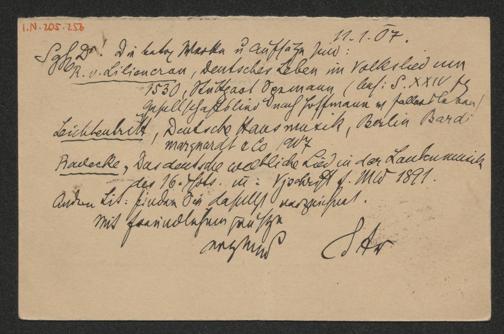 I.N. 205.256
11.1.07.
Sgh. Dr! Die betr. Werke u Aufsätze sind:
R. v. Liliencron, Deutsches Leben im Volkslied um
1530, Stuttgart Spemann, (bes: S. XXIV ff
Gesellschaftslied nach Hoffmann v. Fallersleben)
Leichtentritt, Deutsche Hausmusik, Berlin Bard
Marquardt & Co 1907
Radecke, Das deutsche weltliche Lied in der Lautenmusik
des 16. Jhts. in: Vjschrift f. MW 1891.
Andere Lit: finden Sie daselbst verzeichnet.
Mit freundlichen Grüßen